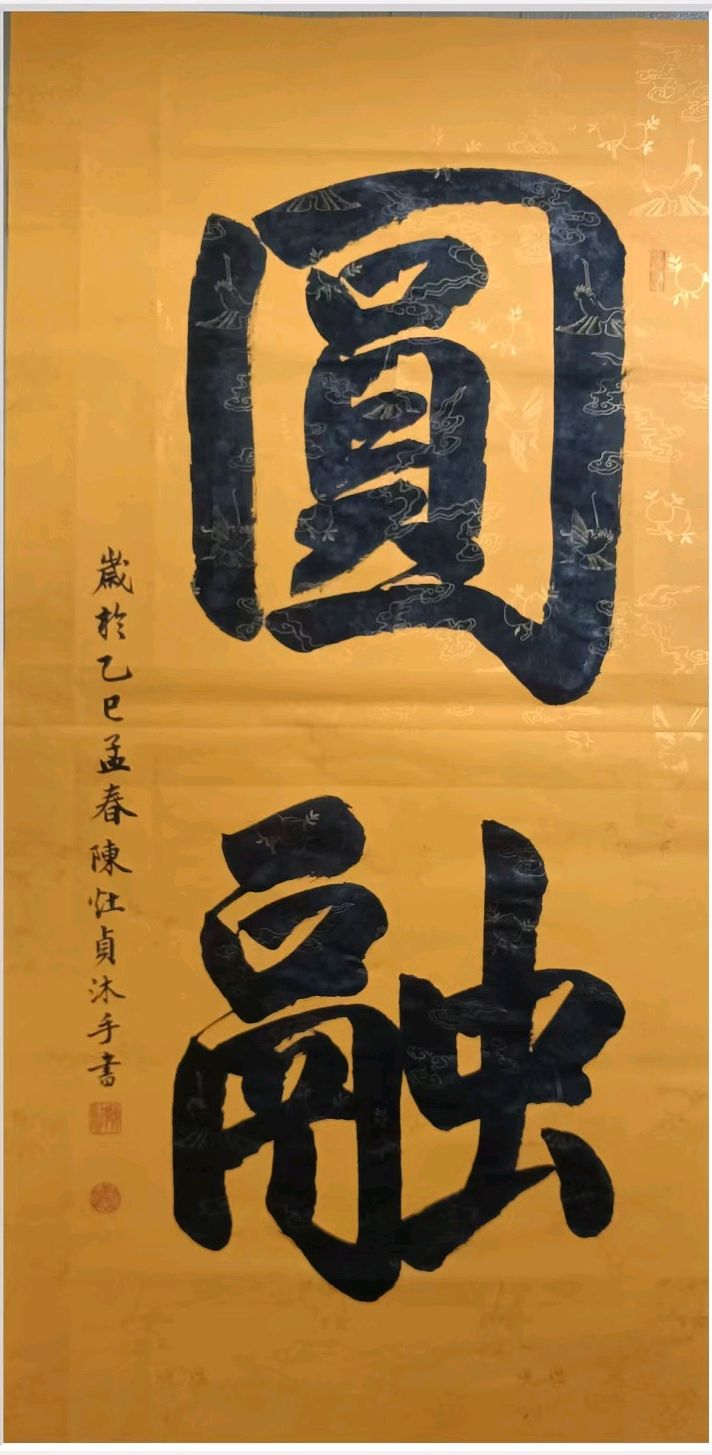 圓融
歲於乙巳孟春陳灶貞沐手書